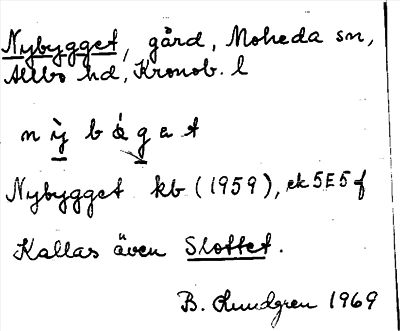 Nybygget, gård, Moheda sn,
Allbo hd, Kronob. l
n ỳ b ǿ g a t
Nybygget kb (1959), ek 5E5f
Kallas även Slottet.
B. Lundgren 1969